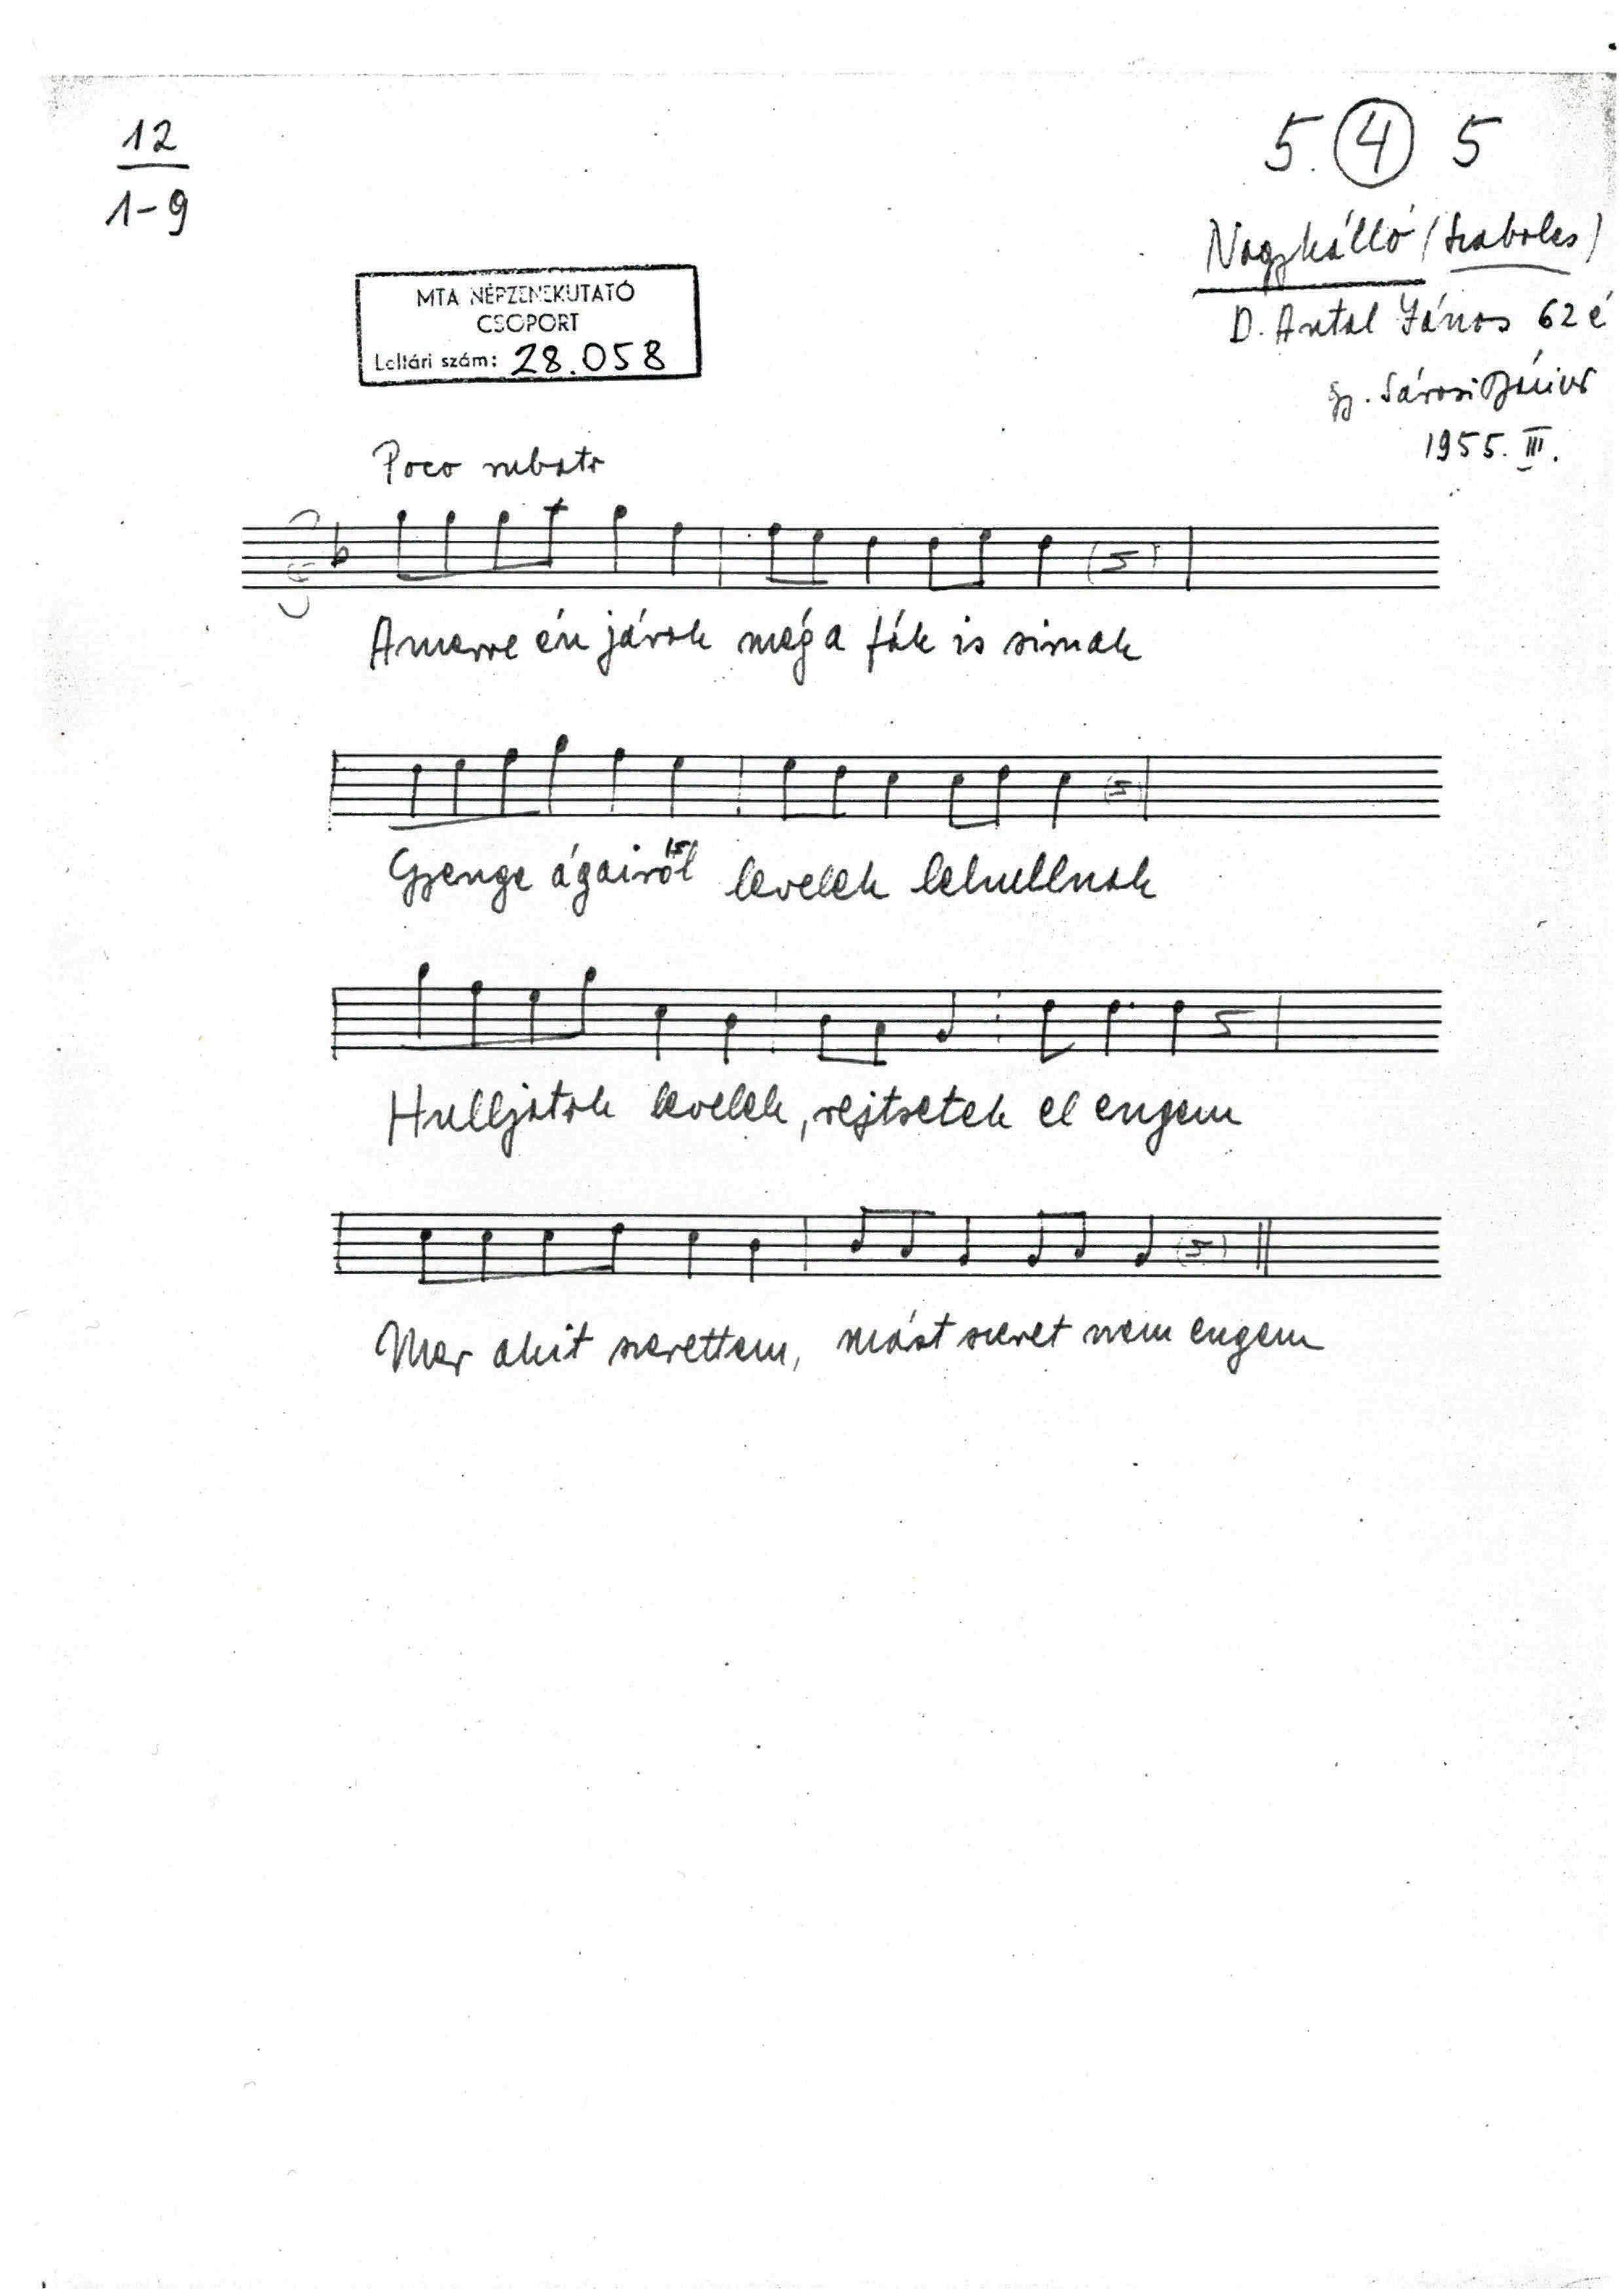 12
1-9
5. 4 5
Nagykálló (Szabolcs)
D. Antal János 62 é
gy. Sárosi Bálint
1955. III.
MTA NÉPZENEKUTATÓ
CSOPORT
Leltári szám: 28.058
Poco rubato
Amerre én járok még a fák is sirnak
Gyenge ágairól levelek lehullnak
Hulljatok levelek, rejtsetek el engem
Mer akit szerettem, mást szeret nem engem